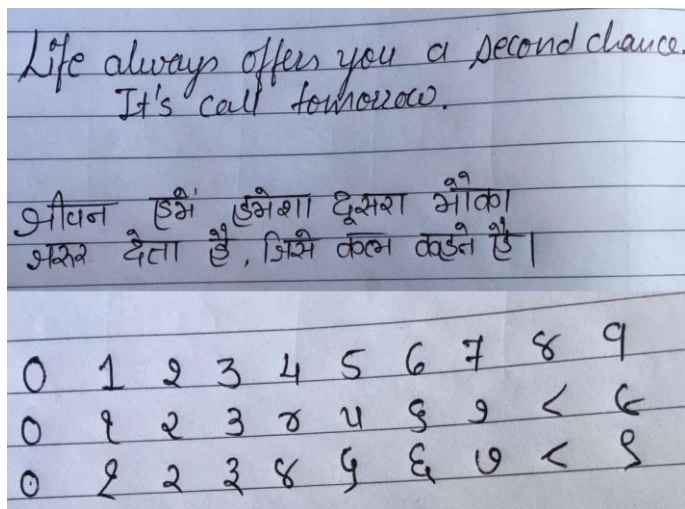 Life always offers you a second chance.
It's call tomorrow.
जीवन हमें हमेशा दूसरा मौका
जरूर देता है, जिसे कल कहते है।
0 1 2 3 4 5 6 7 8 9
० १ २ ३ ४ ५ ६ ७ ८ ९
० १ २ ३ ४ ५ ६ ७ ८ ९